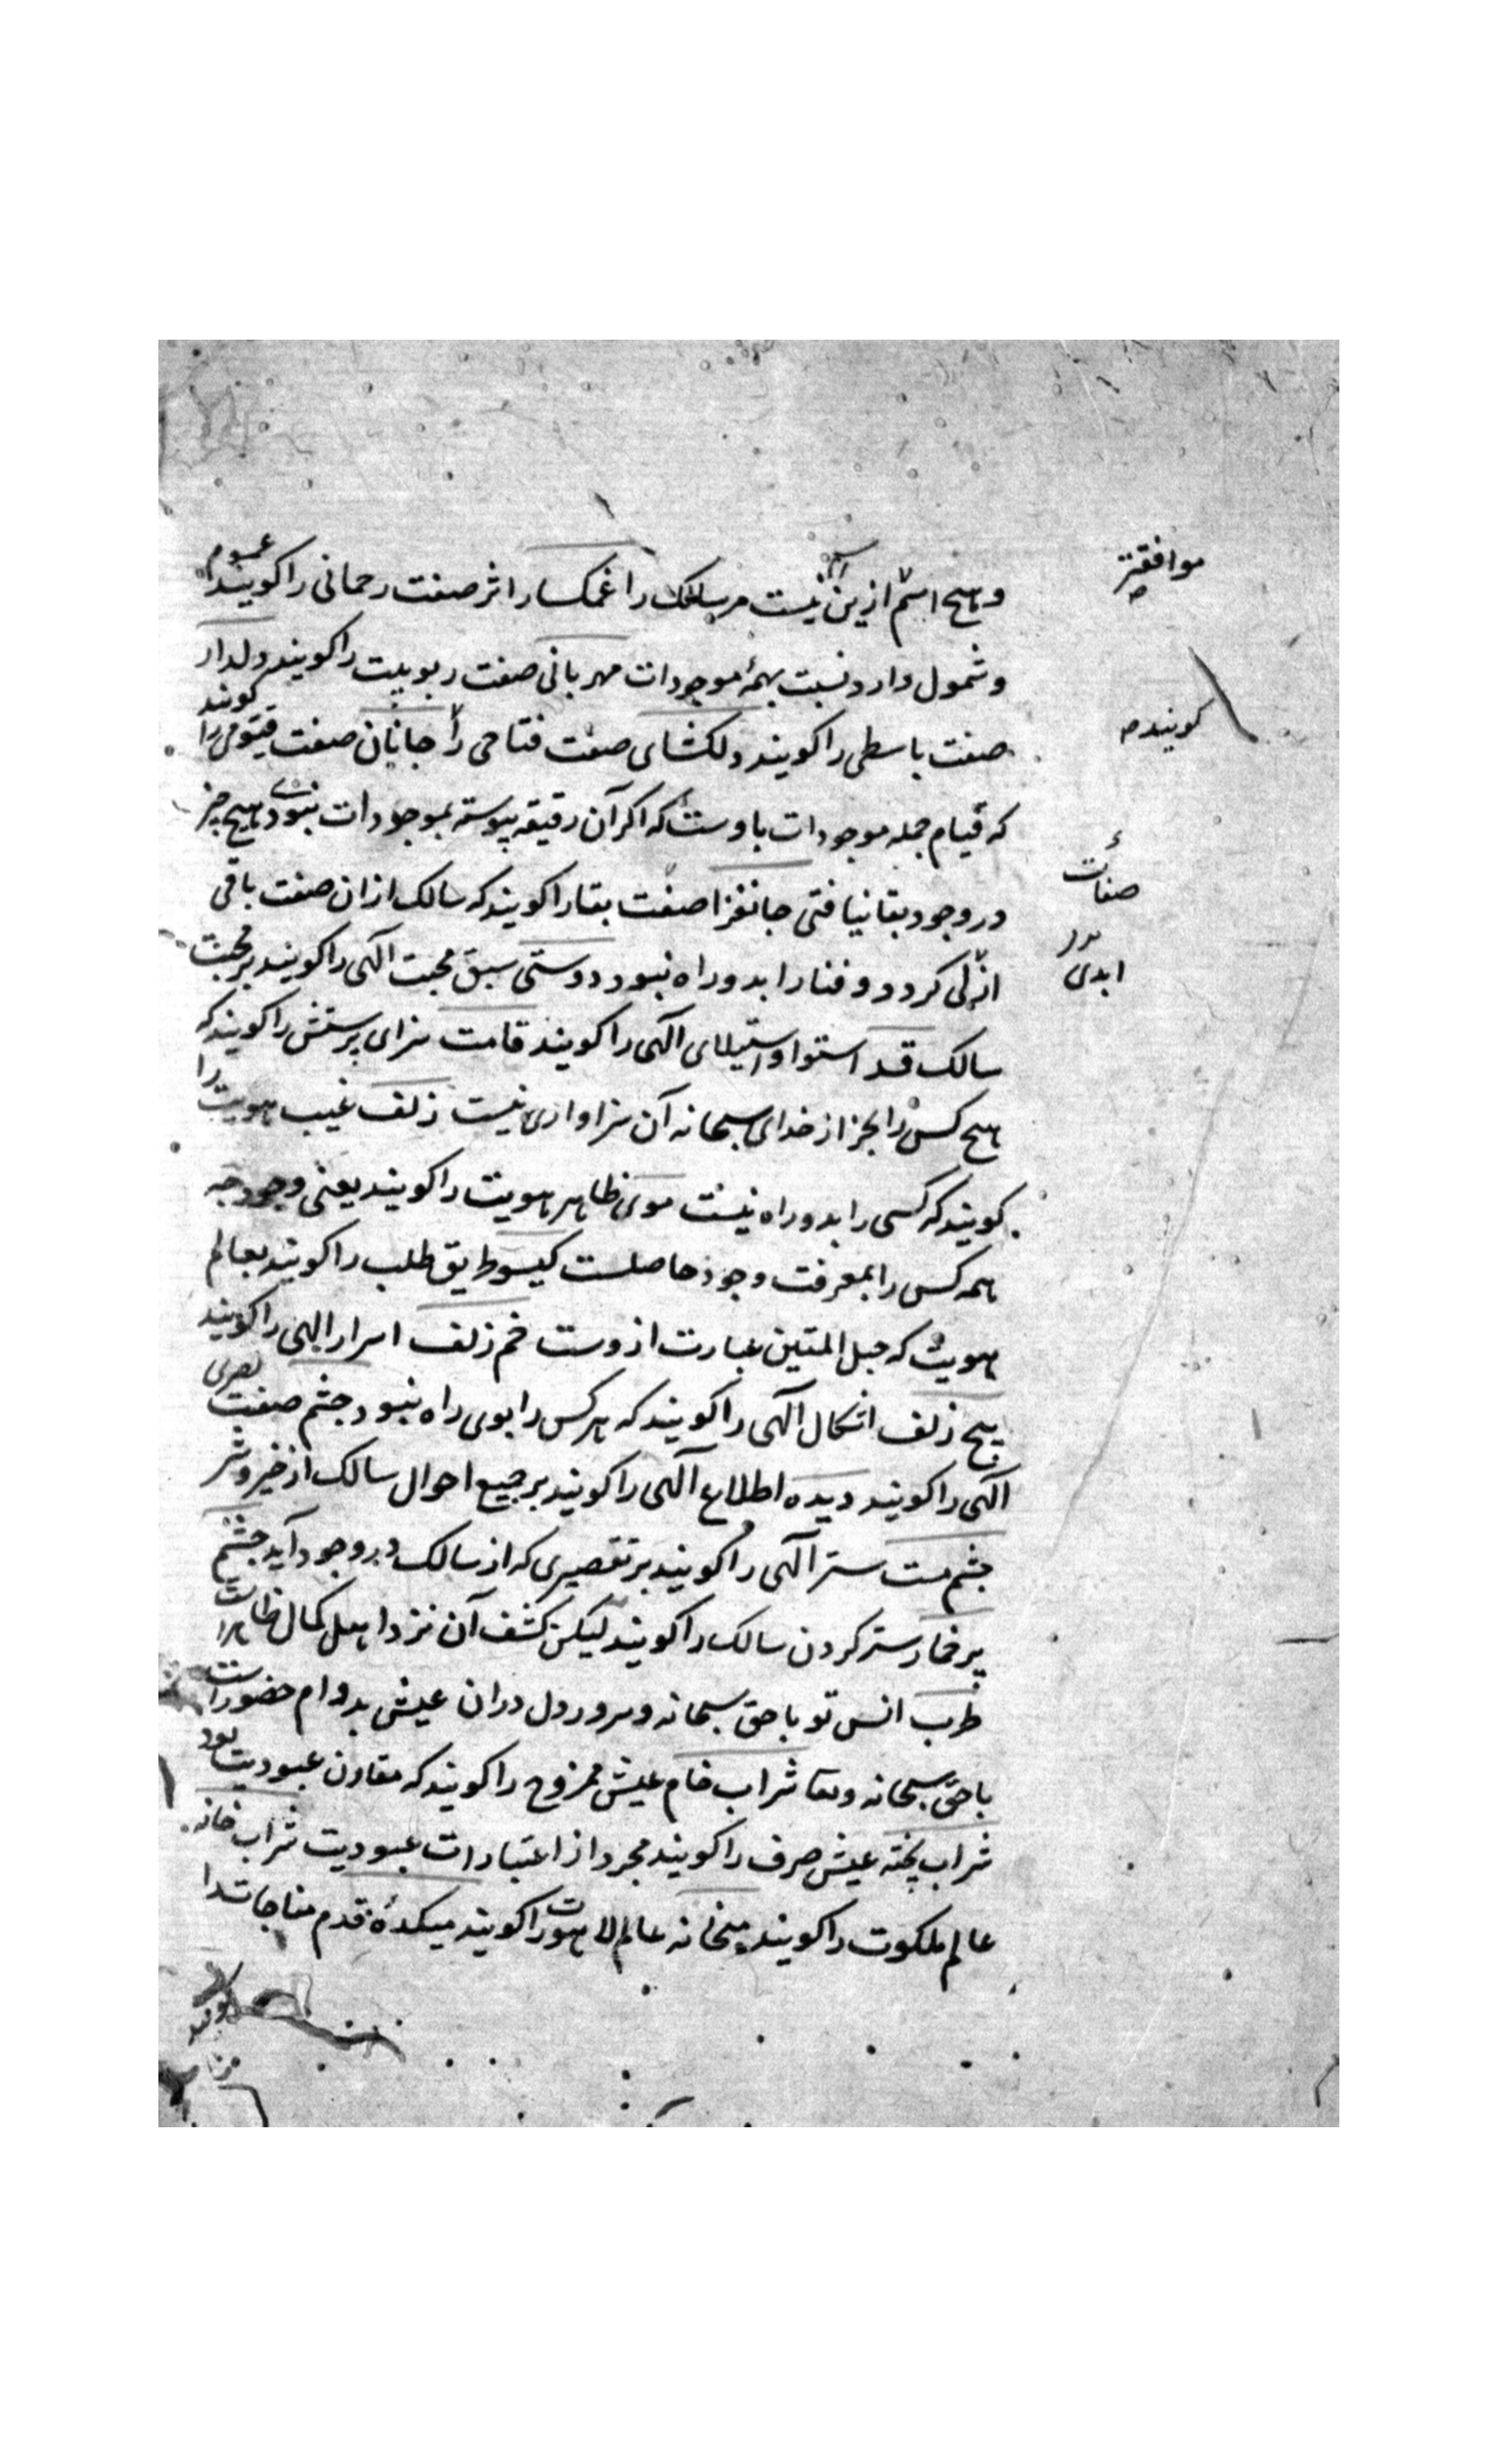 وهیچ اسم ازین نیست مر سالک را غمکسار اثر صفت رحمانی را کویند عموم
موافقتر
وشمول دارد نسبت بهمهٔ موجودات مهربانی صفت ربوبیت را کویند دلدار
صفت باسطی را کویند دلکشای صفت فتاحی را جانان صفت قیومی را کویند
کویند
که قیام جمله موجودات باوست که اکر آن دقیقه پیوسته بموجودات نبودی هیچ چیز
در وجود بقا نیافتی جانفزا صفت بقا را کویند که سالک ازان صفت باقی
صفات
ازلی کردد و فنا را بدو راه نبود دوستی سبق محبت آلهی را کویند بر محبت
ابدی
سالک قد استوا واستیلای آلهی را کویند قامت سزای پرستش را کویند که
هیچ کس را بجز از خدای سبحانه آن سزاواری نیست زلف غیب هویت را
کویند که کسی را بدو راه نیست موی ظاهر هویت را کویند یعنی وجود چه
همه کس را بمعرفت وجود حاصلست کیسو طریق طلب را کویند بعالم
هویت که حبل المتین عبارت ازوست خم زلف اسرار الهی را کویند
پیچ زلف اشکال آلهی را کویند که هر کس را بوی راه نبود چشم صفت بصری
آلهی را کویند دیده اطلاع آلهی را کویند بر جمیع احوال سالک از خیر و شر
چشم مست ستر آلهی را کویند بر تقصیری که از سالک در وجود آید چشم
پر خمار ستر کردن سالک را کویند لیکن کشف آن نزد اهل کمال ظاهر است
طرب انس تو باحق سبحانه وسرور دل دران عیش بدوام حضور است
باحق سبحانه و شراب خام عیش ممزوج را کویند که مقارن عبودیت بود
شراب پخته عیش صرف را کویند مجرد از اعتبارات عبودیت شراب خانه
عالم ملکوت را کویند میخانه عالم لاهوت را کویند میکده قدم مناجات را
کویند